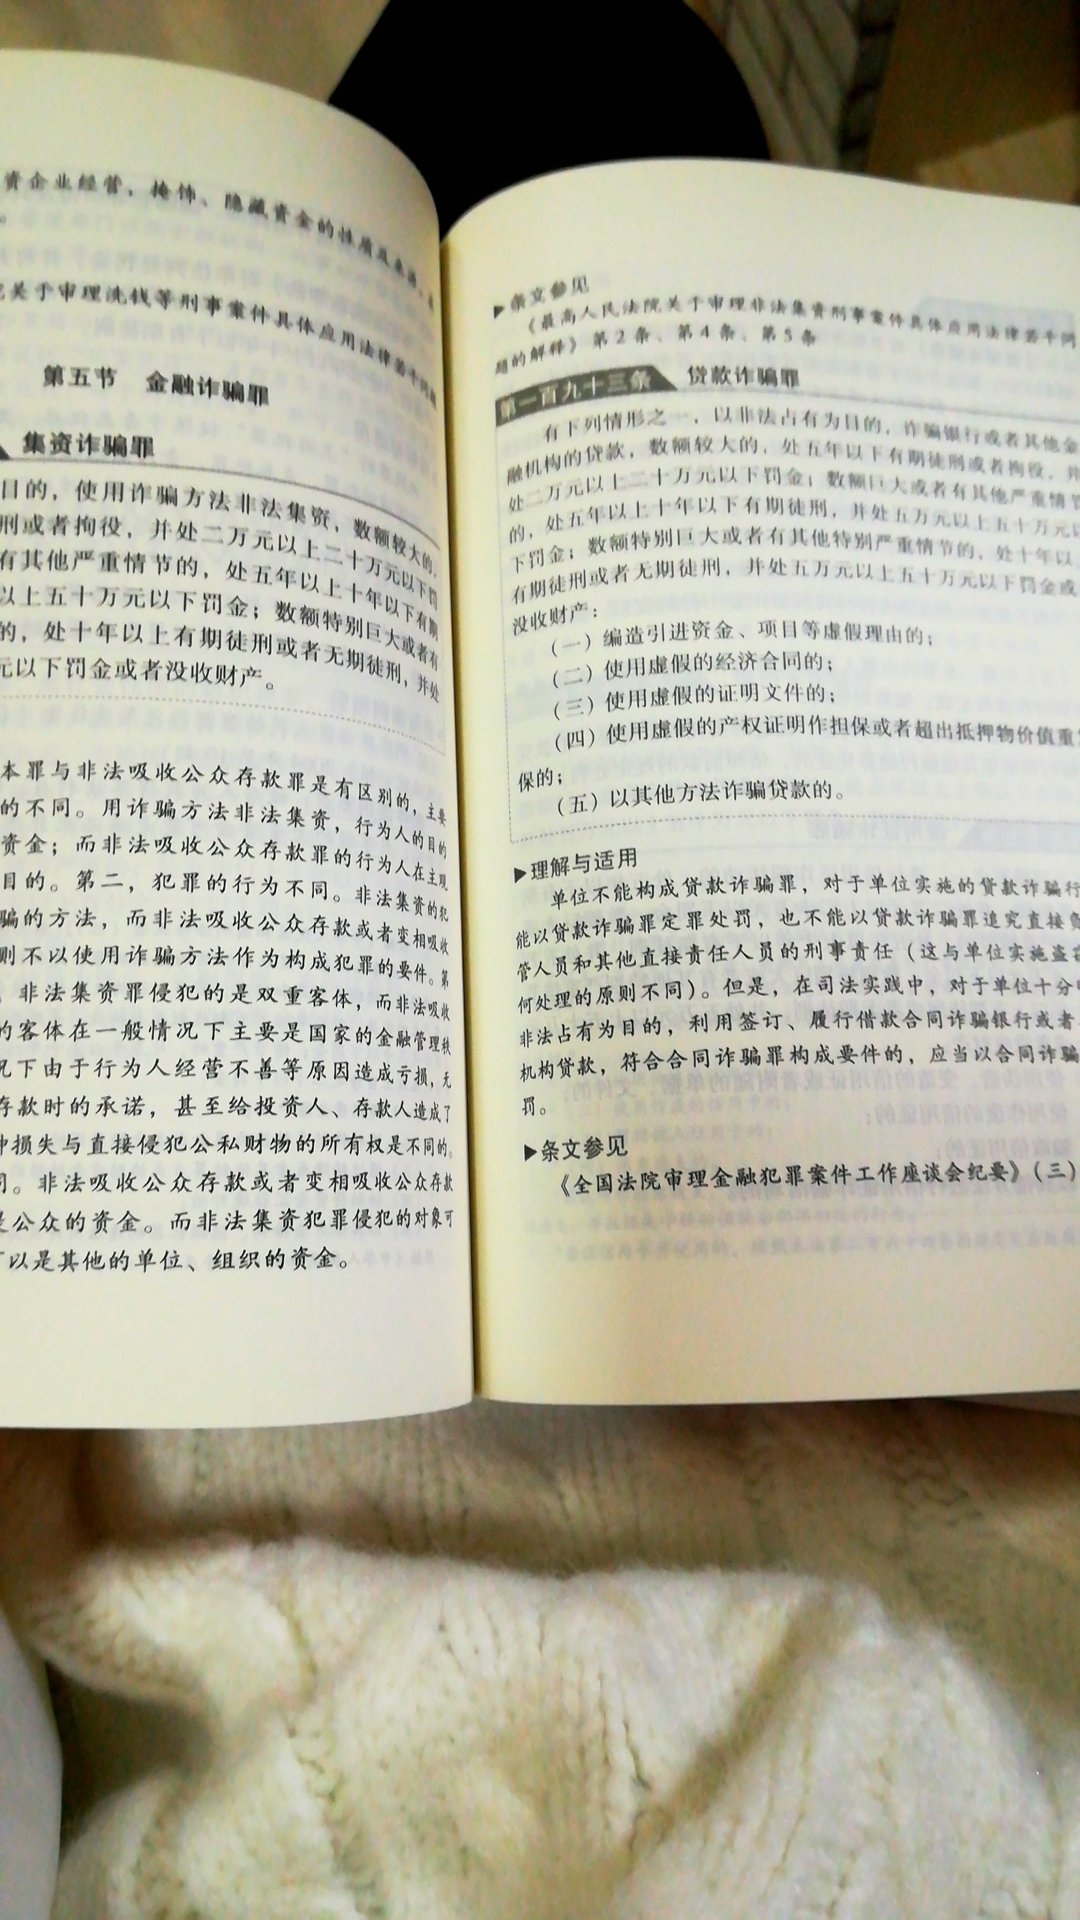 资企业经营，掩饰、隐藏资金的性质及来源。
关于审理洗钱等刑事案件具体应用法律若干问题
第五节 金融诈骗罪
集资诈骗罪
目的，使用诈骗方法非法集资，数额较大的，
刑或者拘役，并处二万元以上二十万元以下罚
有其他严重情节的，处五年以上十年以下有期
以上五十万元以下罚金；数额特别巨大或者有
的，处十年以上有期徒刑或者无期徒刑，并处
元以下罚金或者没收财产。
本罪与非法吸收公众存款罪是有区别的，主要
的不同。用诈骗方法非法集资，行为人的目的
资金；而非法吸收公众存款罪的行为人在主观
目的。第二，犯罪的行为不同。非法集资的犯
骗的方法，而非法吸收公众存款或者变相吸收
则不以使用诈骗方法作为构成犯罪的要件。第
，非法集资罪侵犯的是双重客体，而非法吸收
的客体在一般情况下主要是国家的金融管理秩
况下由于行为人经营不善等原因造成亏损，无
存款时的承诺，甚至给投资人、存款人造成了
损失与直接侵犯公私财物的所有权是不同的。
同。非法吸收公众存款或者变相吸收公众存款
是公众的资金。而非法集资犯罪侵犯的对象可
以是其他的单位、组织的资金。
▶条文参见
《最高人民法院关于审理非法集资刑事案件具体应用法律若干问
题的解释》第2条、第4条、第5条
第一百九十三条 贷款诈骗罪
有下列情形之一，以非法占有为目的，诈骗银行或者其他金
融机构的贷款，数额较大的，处五年以下有期徒刑或者拘役，并
处二万元以上二十万元以下罚金；数额巨大或者有其他严重情节
的，处五年以上十年以下有期徒刑，并处五万元以上五十万元以
下罚金；数额特别巨大或者有其他特别严重情节的，处十年以上
有期徒刑或者无期徒刑，并处五万元以上五十万元以下罚金或
没收财产：
（一）编造引进资金、项目等虚假理由的；
（二）使用虚假的经济合同的；
（三）使用虚假的证明文件的；
（四）使用虚假的产权证明作担保或者超出抵押物价值重
保的；
（五）以其他方法诈骗贷款的。
▶理解与适用
单位不能构成贷款诈骗罪，对于单位实施的贷款诈骗行
能以贷款诈骗罪定罪处罚，也不能以贷款诈骗罪追究直接负
管人员和其他直接责任人员的刑事责任（这与单位实施盗窃
何处理的原则不同）。但是，在司法实践中，对于单位十分明
非法占有为目的，利用签订、履行借款合同诈骗银行或者
机构贷款，符合合同诈骗罪构成要件的，应当以合同诈骗
罚。
▶条文参见
《全国法院审理金融犯罪案件工作座谈会纪要》（三）